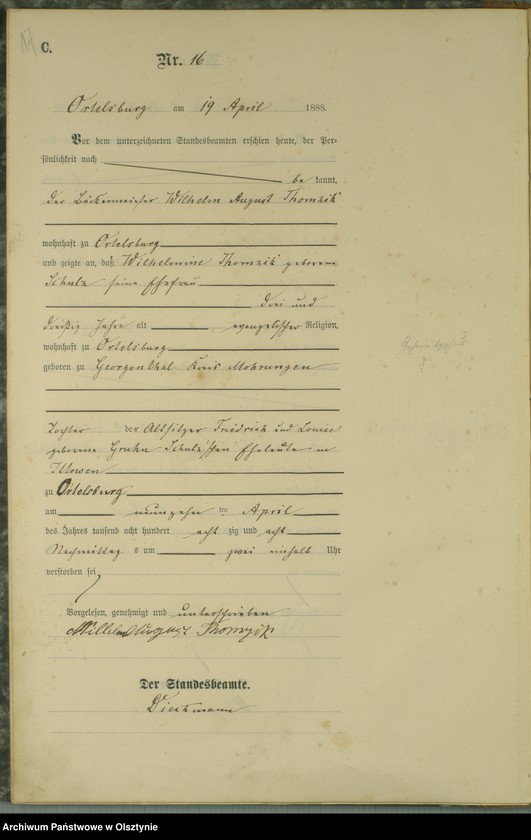 C.
Nr. 16
Ortelsburg am 19 April 1888.
Vor dem unterzeichneten Standesbeamten erschien heute, der Per-
sönlichkeit nach
be kannt,
der Bäckermeister Wilhelm August Thomzik
wohnhaft zu Ortelsburg
und zeigte an, daß Wilhelmine Thomzik geborene
Schulz seine Ehefrau
drei und
dreißig Jahre alt evangelischer Religion,
wohnhaft zu Ortelsburg
geboren zu Georgenthal Kreis Mohrungen
Tochter der Altsitzer Friedrich und Louise
geborene Gruhn Schulz'schen Eheleute in
zu Ortelsburg
am neunzehn ten April
des Jahres tausend acht hundert acht zig und acht
Nachmittag s um zwei einhalb Uhr
verstorben sei
Vorgelesen, genehmigt und unterschrieben
Wilhelm August Thomzik
Der Standesbeamte.
Dieckmann
Archiwum Państwowe w Olsztynie